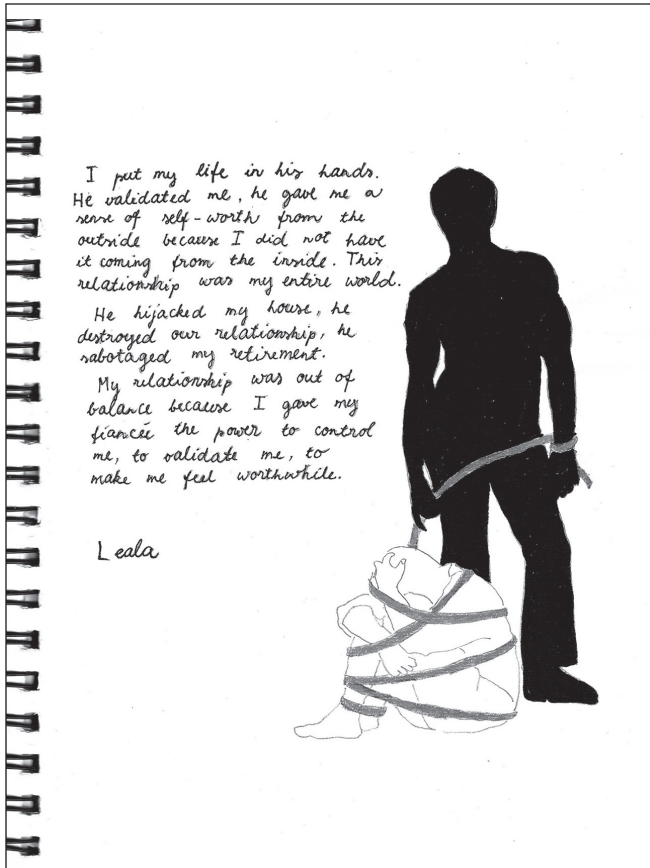 I put my life in his hands.
He validated me, he gave me a
sense of self-worth from the
outside because I did not have
it coming from the inside. This
relationship was my entire world.
He hijacked my house, he
destroyed our relationship, he
sabotaged my retirement.
My relationship was out of
balance because I gave my
fiancée the power to control
me, to validate me, to
make me feel worthwhile.
Leala